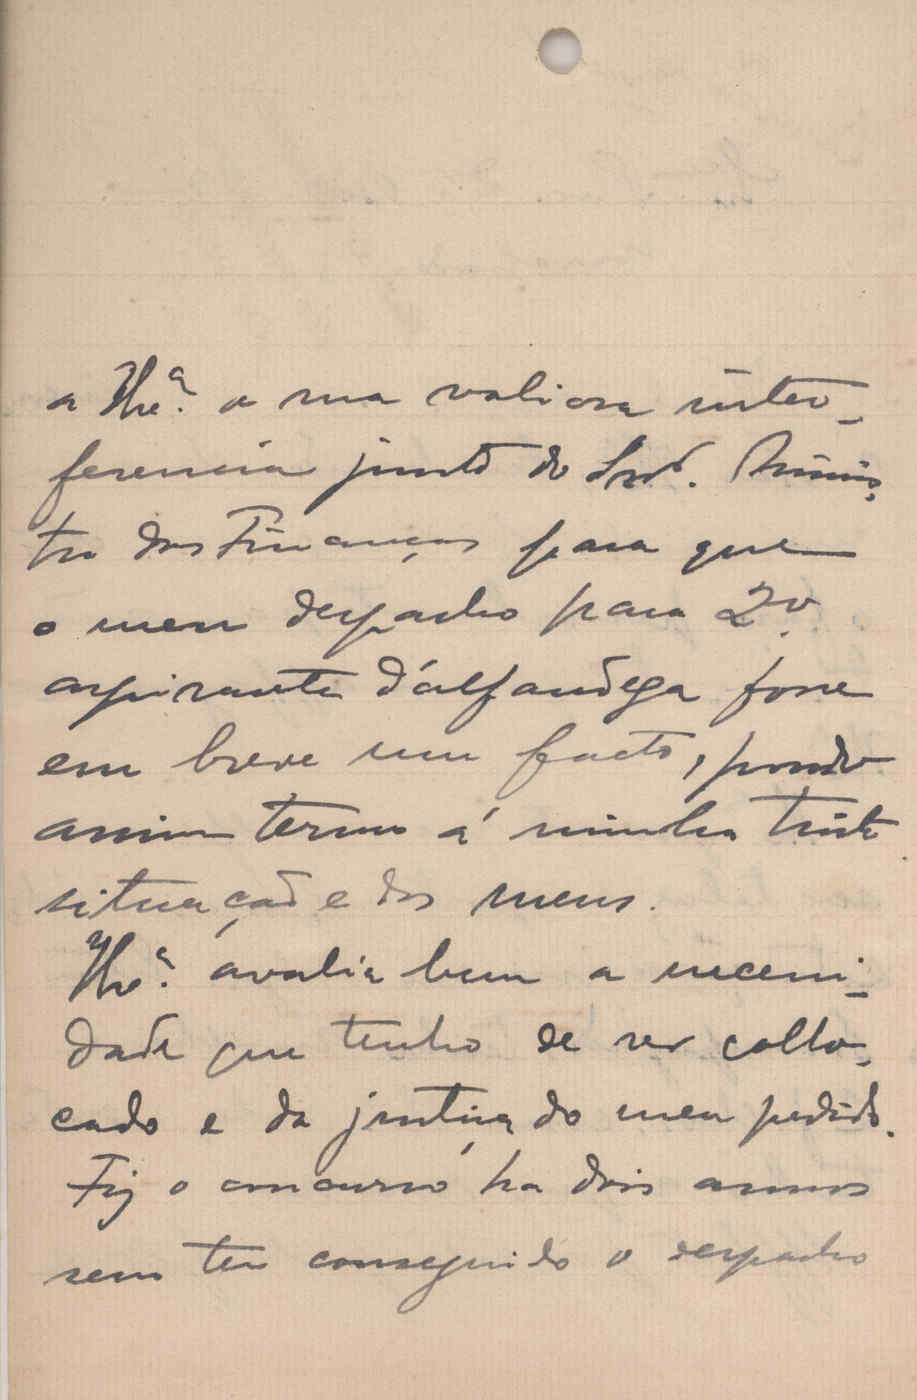 a V. Ex.ª a sua valiosa inter-
ferencia junto do Snr. Minis-
tro das Finanças para que
o meu despacho para 2º
aspirante d'alfandega fosse
em breve um facto, pondo
assim termo á minha triste
situação e dos meus.
V. Ex.ª avalia bem a necessi-
dade que tenho de ser collo-
cado e da justiça do meu pedido.
Fiz o concurso ha dois annos
sem ter conseguido o despacho